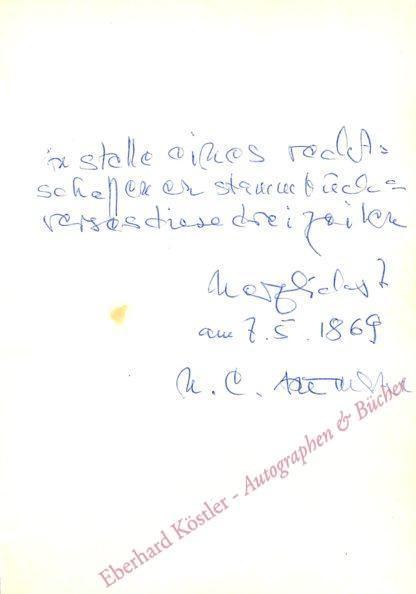 in stelle eines recht=
schaffenen stammbuch=
verses diese drei zeilen
herzlichst
am 7.5.1869
H. C. Artmann
Eberhard Köstler - Autographen & Bücher